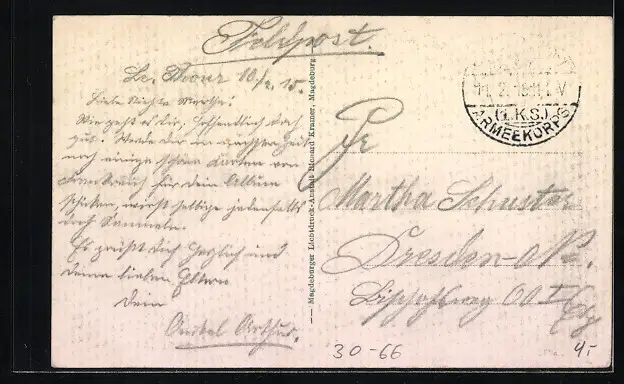 Feldpost.
10./2. 15.
Liebe Nichte Martha!
Wie geht es Dir, hoffentlich doch
gut. Werde Dir in nächster Zeit
noch einige schöne Karten von
Frankreich für Dein Album
schicken, wirst selbige jedenfalls
doch sammeln.
Es grüßt Dich herzlich und
Deine lieben Eltern
Dein
Onkel Arthur.
Magdeburger Lichtdruck-Anstalt Richard Kramer, Magdeburg.
11. 2. 15 11-12 V
(1.K.S.)
ARMEEKORPS
Martha Schuster
Dresden-N.
Bischofsweg
30-66
4.-